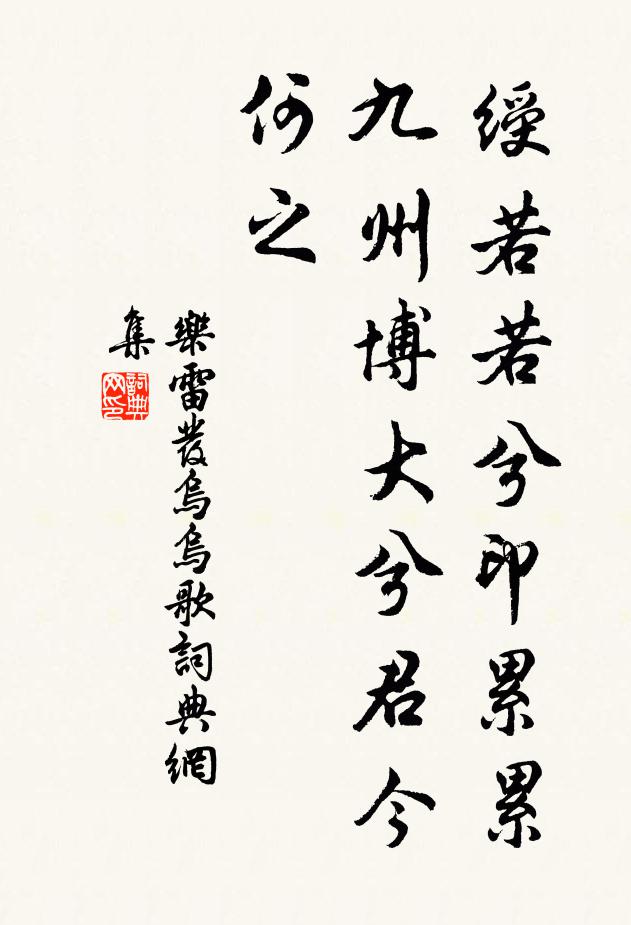 綬若若兮印累累
九州博大兮君今
何之
樂雷發烏烏歌詞典網
集
詞典
网印